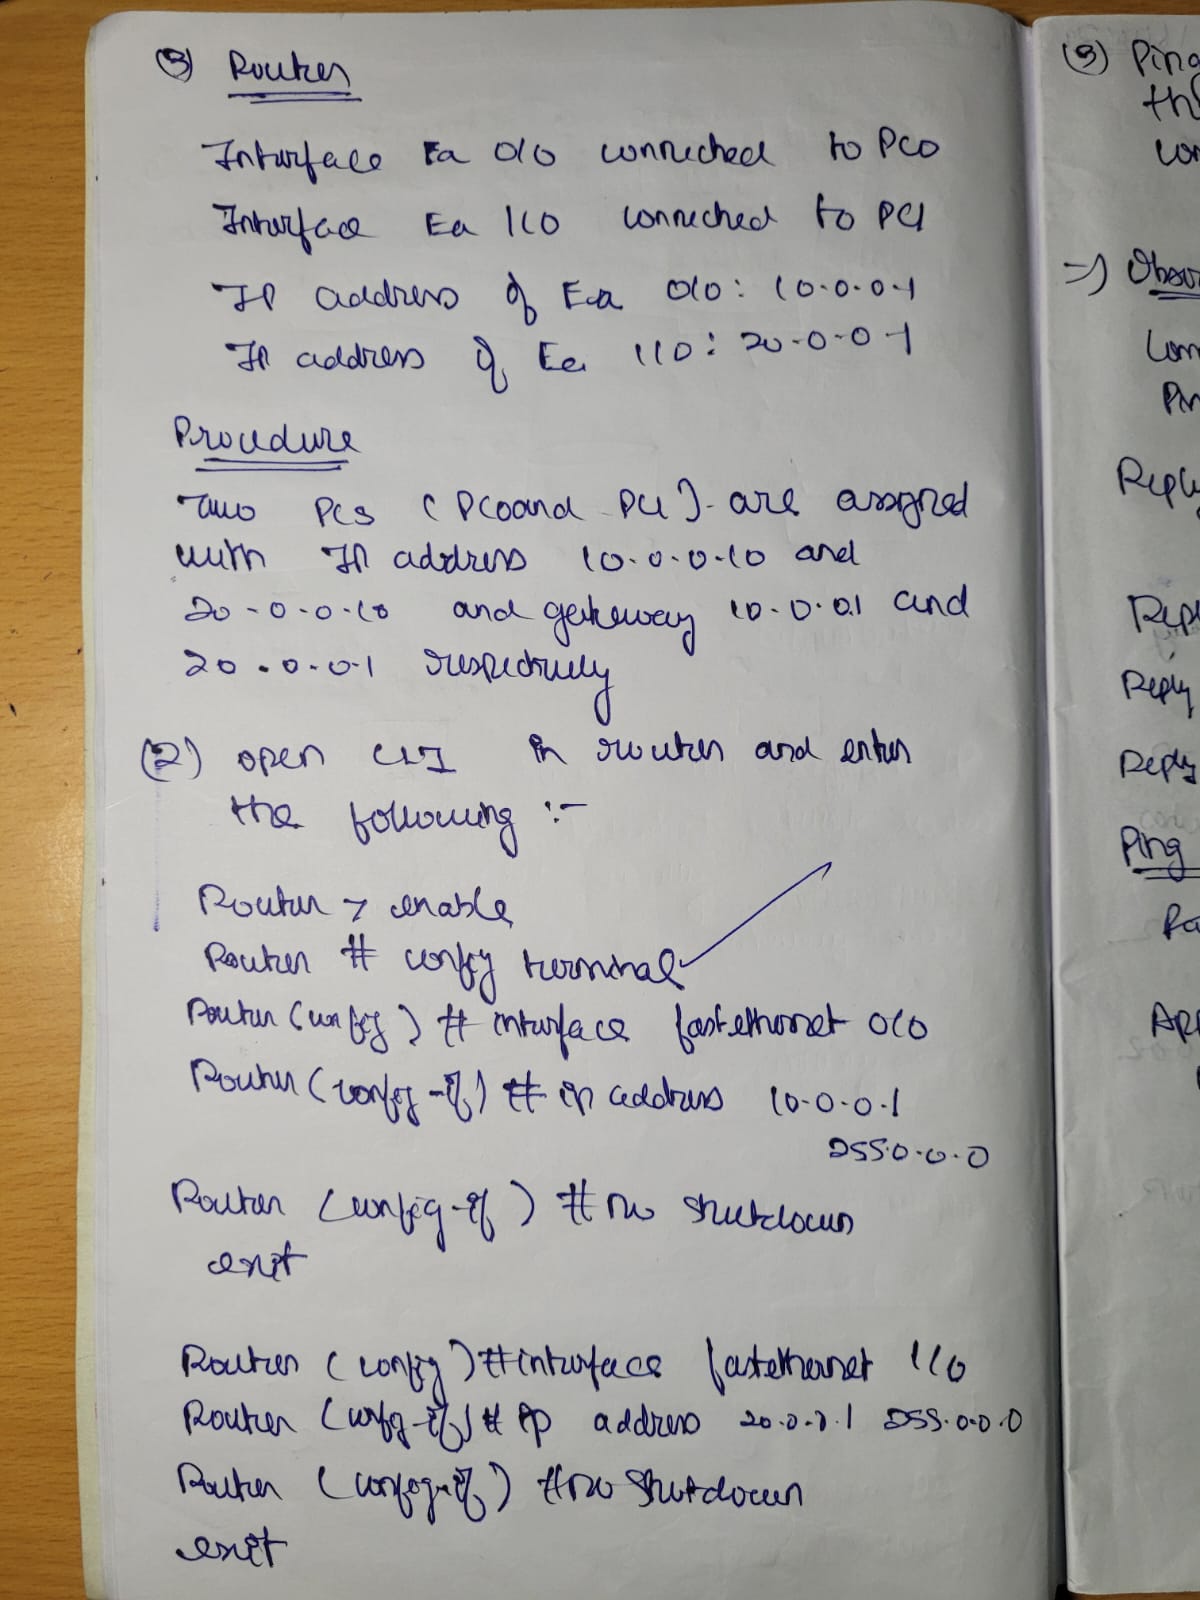 (3) Router
Interface Fa 0/0 connected to PC0
Interface Fa 1/0 connected to PC1
IP address of Fa 0/0 : 10.0.0.1
IP address of Fa 1/0 : 20.0.0.1
Procedure
Two PCs (PC0 and PC1) are assigned
with IP address 10.0.0.10 and
20.0.0.10 and gateway 10.0.0.1 and
20.0.0.1 respectively
(2) open CLI in router and enter
the following :-
Router > enable
Router # config terminal
Router (config) # interface fastethernet 0/0
Router (config-if) # ip address 10.0.0.1
255.0.0.0
Router (config-if) # no shutdown
exit
Router (config) # interface fastethernet 1/0
Router (config-if) # ip address 20.0.0.1 255.0.0.0
Router (config-if) # no shutdown
exit
(3) Ping
=)
Reply
Reply
Reply
Ping